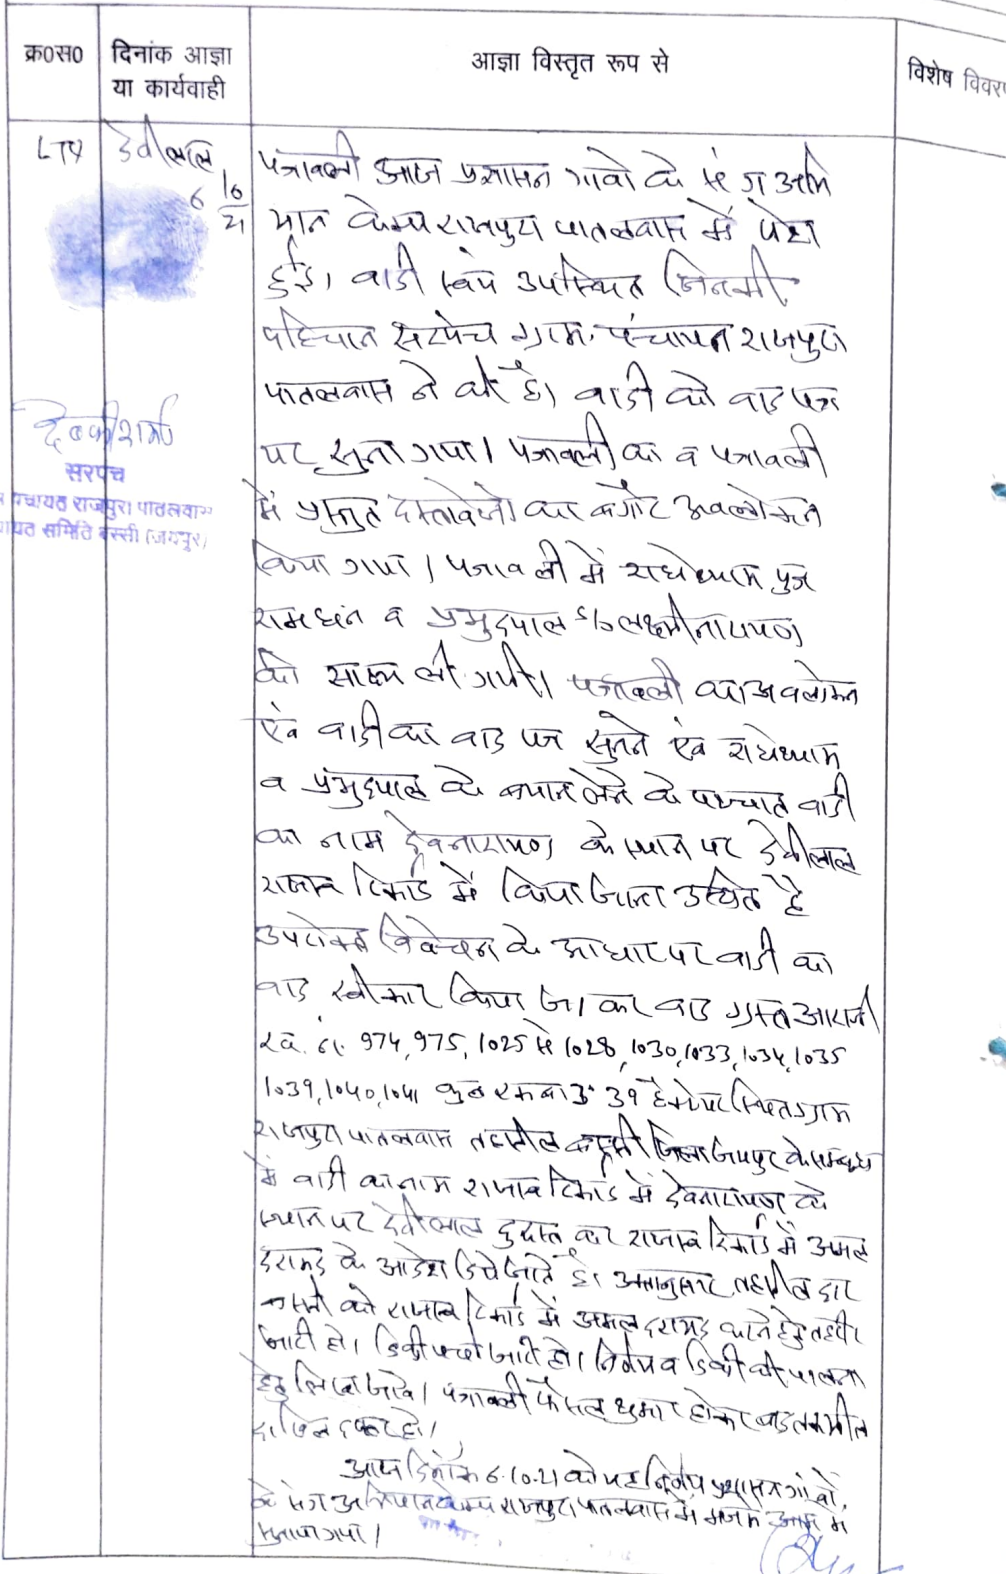 क्र0स0
दिनांक आज्ञा
या कार्यवाही
आज्ञा विस्तृत रूप से
विशेष विवर
LTI देवीलाल
6/10/21
देवकी शर्मा
सरपंच
पंचायत राजपुरा पातलवास
यत समिति बस्सी (जयपुर)
पत्रावली आज प्रशासन गावो के संग अभि
यान केम्प राजपुरा पातलवास में पेश
हुई। वादी स्वंय उपस्थित जिनकी
पहिचान सरपंच ग्राम पंचायत राजपुरा
पातलवास ने की है। वादी को वाद पत्र
पर सुना गया। पत्रावली का व पत्रावली
में प्रस्तुत दस्तावेजो का बगौर अवलोकन
किया गया। पत्रावली में राधेश्याम पुत्र
रामधन व प्रभुदयाल S/o लक्ष्मीनारायण
की साक्ष्य ली गयी। पत्रावली का अवलोकन
एंव वादी का वाद पत्र सुनने एंव राधेश्याम
व प्रभुदयाल के बयान लेने के पश्चात वादी
का नाम देवनारायण के स्थान पर देवीलाल
राजस्व रिकार्ड में किया जाना उचित है
उपरोक्त विवेचन के आधार पर वादी का
वाद स्वीकार किया जाकर वाद ग्रस्त आराजी
ख. नं. 974, 975, 1025 से 1028, 1030, 1033, 1034, 1035
1039, 1040, 1041 कुल रकबा 3.39 हैक्टेयर स्थित ग्राम
राजपुरा पातलवास तहसील बस्सी जिला जयपुर के सम्बन्ध
में वादी का नाम राजस्व रिकार्ड में देवनारायण के
स्थान पर देवीलाल दुरुस्त कर राजस्व रिकार्ड में अमल
दरामद के आदेश दिये जाते है। तहसीलदार
बस्सी को राजस्व रिकार्ड में अमल दरामद करने हेतु तहरीर
जारी हो। डिक्री पर्चा जारी हो। निर्णय व डिक्री की पालना
हेतु लिखा जावे। पत्रावली फैसल शुमार होकर बाद तकमील
दाखिल दफ्तर हो।
आज दिनांक 6.10.21 को यह निर्णय प्रशासन गांवो
के संग अभियान केम्प राजपुरा पातलवास में मजमे आम में
सुनाया गया।